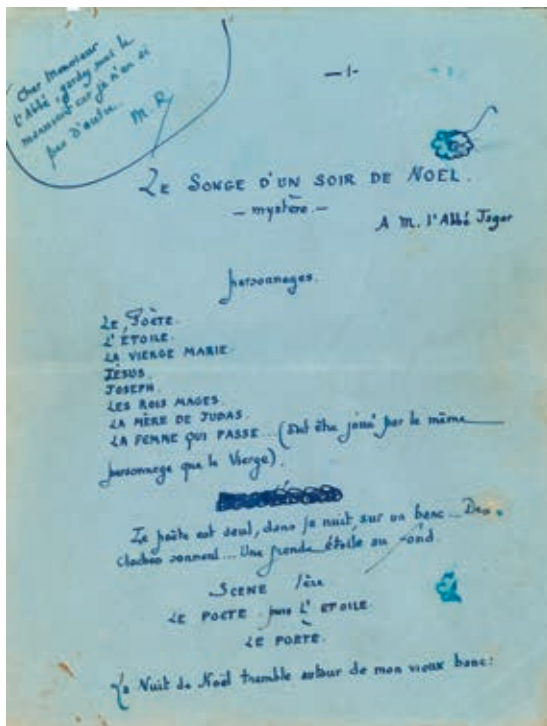 Cher Monsieur
l'Abbé, gardez moi le
manuscrit car je n'en ai
pas d'autre...
M.R
—1—
LE SONGE D'UN SOIR DE NOËL.
— mystère. —
A M. l'Abbé Jager
personnages.
LE POÈTE.
L'ÉTOILE.
LA VIERGE MARIE.
JÉSUS.
JOSEPH.
LES ROIS MAGES.
LA MÈRE DE JUDAS.
LA FEMME QUI PASSE... (doit être joué par le même
personnage que la Vierge).
Le poète est seul, dans la nuit, sur un banc... Des
cloches sonnent... Une grande étoile au fond
SCENE 1ère
LE POETE puis L'ETOILE.
LE POETE.
La Nuit de Noël tremble autour de mon vieux banc: